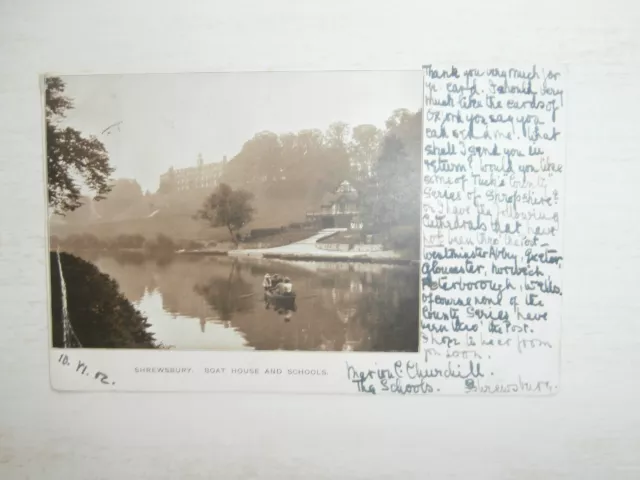 Thank you very much for
yr card. I should very
much like the cards of
Oxford you say you
can send me. What
shall I send you in
return? Would you like
some of Tuck's County
Series of Shropshire?
I have the following
Cathedrals that have
not been thro' the Post -
Westminster Abbey, Exeter,
Gloucester, Norwich
Peterborough, Wells,
of course none of the
County Series have
been thro' the Post.
I hope to hear from
you soon.
Marion C. Churchill.
The Schools. Shrewsbury.
10. VI. 02.
SHREWSBURY. BOAT HOUSE AND SCHOOLS.